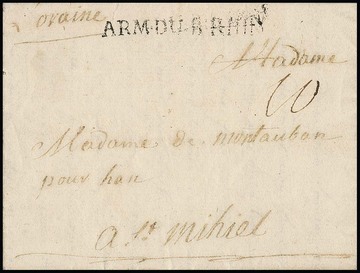 oraine
ARM.DU.B.RHIN
A Madame
10
Madame de montauban
pour han
a st mihiel